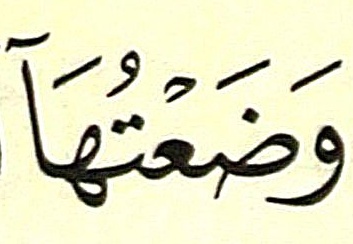 وَضَعْتُهَآ